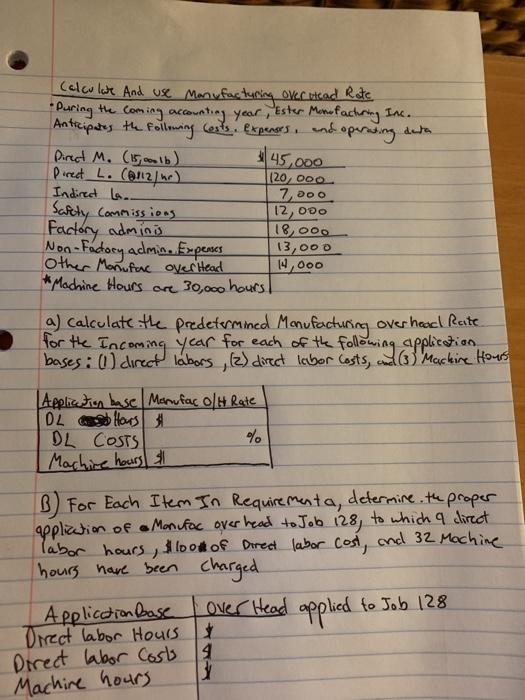 Calculate And use Manufacturing overhead Rate
• During the coming accounting year, Ester Manufacturing Inc.
Anticipates the following Costs, Expenses, and operating data
Direct M. (15,000lb) $ 45,000
Direct L. (@$12/hr) 120,000
Indirect La. 7,000
Safety Commissions 12,000
Factory adminis 18,000
Non-Factory admin. Expenses 13,000
Other Manufac overHead 14,000
*Machine Hours are 30,000 hours
a) calculate the predetermined Manufacturing overhead Rate
for the Incoming year for each of the following application
bases: (1) direct labors, (2) direct labor costs, and (3) Machine Hours
Application base Manufac O/H Rate
DL Hours $
DL COSTS %
Machine hours $
B) For Each Item In Requirement a, determine the proper
application of Manufac overhead to Job 128, to which 9 direct
labor hours, $100 of Direct labor cost, and 32 Machine
hours have been charged
Application Base Over Head applied to Job 128
Direct labor Hours $
Direct labor Costs $
Machine hours $